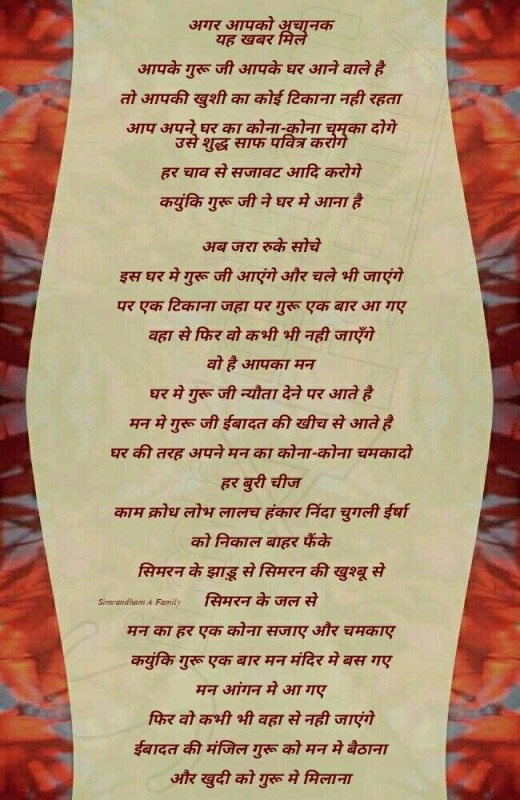 अगर आपको अचानक
यह खबर मिले
आपके गुरू जी आपके घर आने वाले है
तो आपकी खुशी का कोई टिकाना नही रहता
आप अपने घर का कोना-कोना चमका दोगे
उसे शुद्ध साफ पवित्र करोगे
हर चाव से सजावट आदि करोगे
कयुंकि गुरू जी ने घर मे आना है
अब जरा रुके सोचे
इस घर मे गुरू जी आएंगे और चले भी जाएंगे
पर एक टिकाना जहा पर गुरू एक बार आ गए
वहा से फिर वो कभी भी नही जाएँगे
वो है आपका मन
घर मे गुरू जी न्यौता देने पर आते है
मन मे गुरू जी ईबादत की खीच से आते है
घर की तरह अपने मन का कोना-कोना चमकादो
हर बुरी चीज
काम क्रोध लोभ लालच हंकार निंदा चुगली ईर्षा
को निकाल बाहर फैंके
सिमरन के झाडू से सिमरन की खुश्बू से
Simrandham A Family सिमरन के जल से
मन का हर एक कोना सजाए और चमकाए
कयुंकि गुरू एक बार मन मंदिर मे बस गए
मन आंगन मे आ गए
फिर वो कभी भी वहा से नही जाएंगे
ईबादत की मंजिल गुरू को मन मे बैठाना
और खुदी को गुरू मे मिलाना